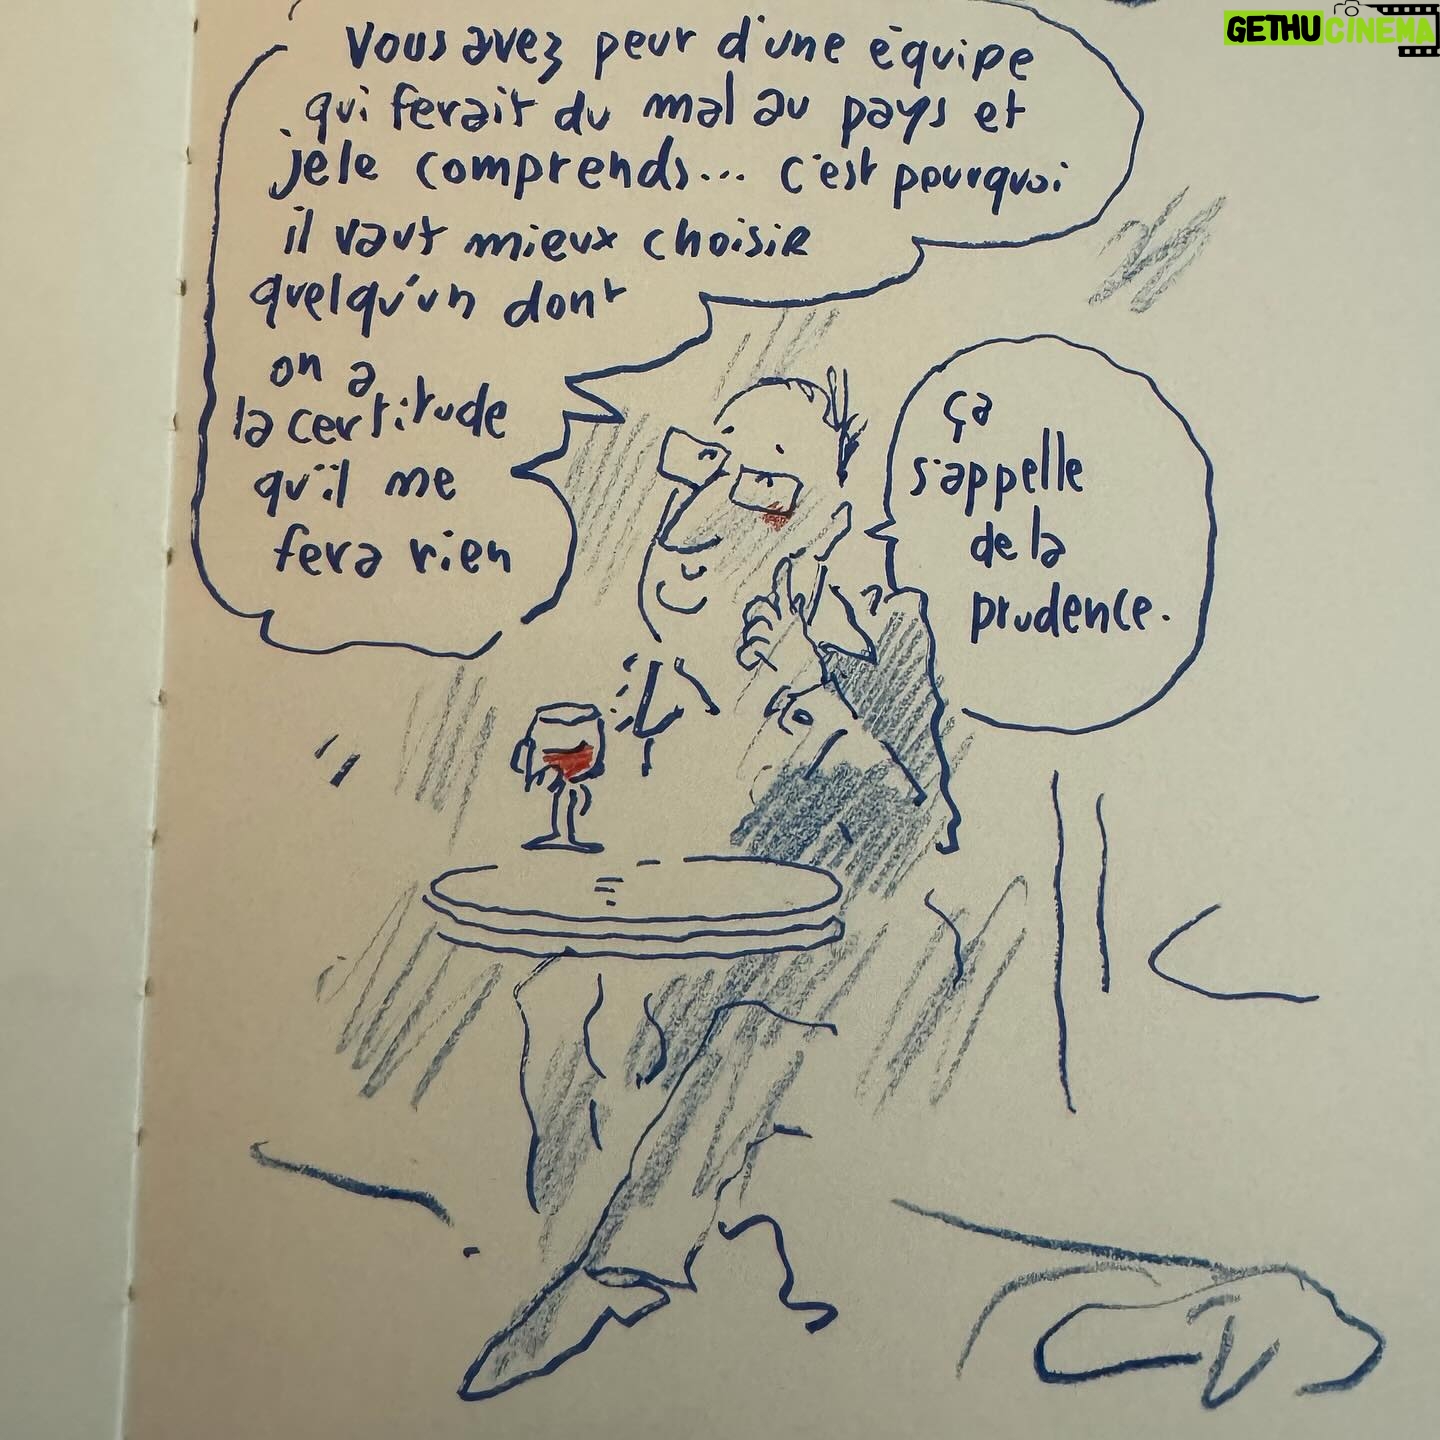 GETHUCINEMA
Vous avez peur d'une équipe
qui ferait du mal au pays et
je le comprends... c'est pourquoi
il vaut mieux choisir
quelqu'un dont
on a
la certitude
qu'il me
fera rien
ça
s'appelle
de la
prudence.